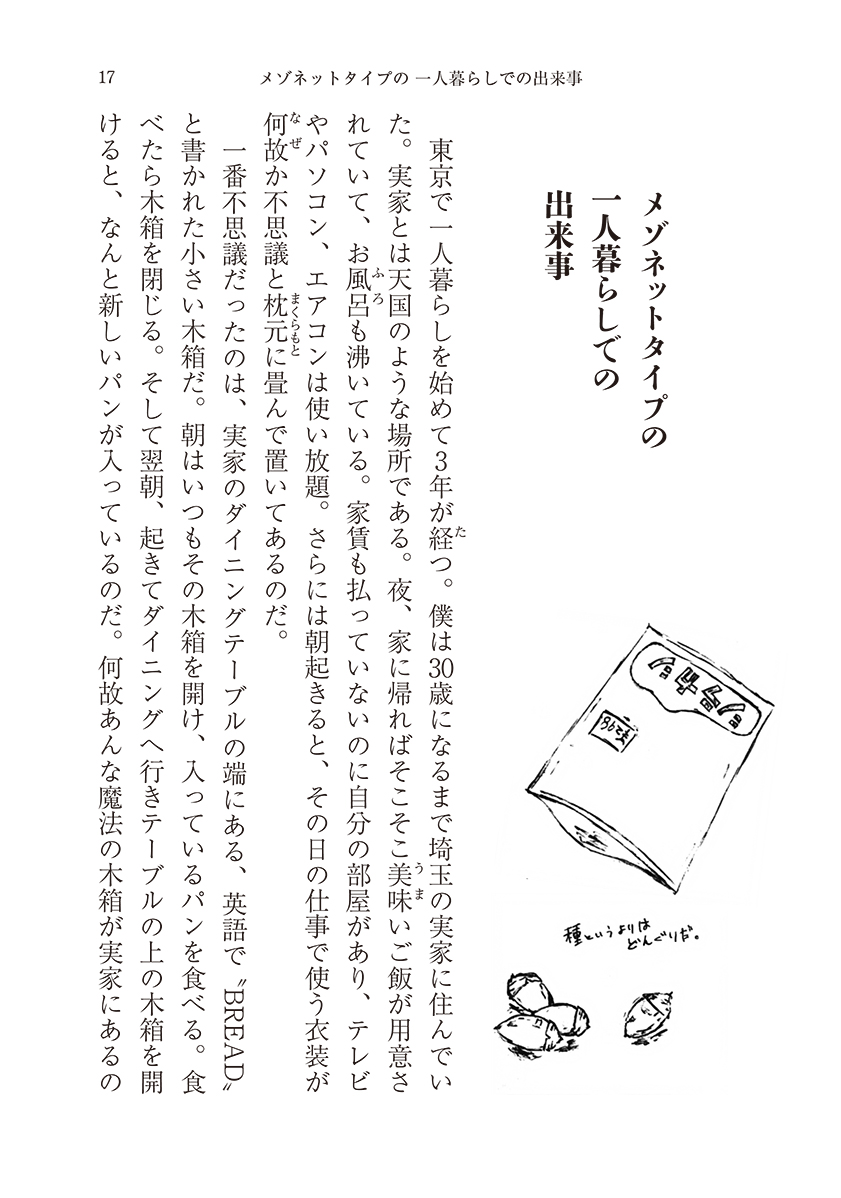 17
メゾネットタイプの 一人暮らしでの出来事
メゾネットタイプの
一人暮らしでの
出来事
シラカシ
¥298
種というよりは
どんぐりだ。
東京で一人暮らしを始めて3年が経つ。僕は30歳になるまで埼玉の実家に住んでい
た。実家とは天国のような場所である。夜、家に帰ればそこそこ美味いご飯が用意さ
れていて、お風呂も沸いている。家賃も払っていないのに自分の部屋があり、テレビ
やパソコン、エアコンは使い放題。さらには朝起きると、その日の仕事で使う衣装が
何故か不思議と枕元に畳んで置いてあるのだ。
一番不思議だったのは、実家のダイニングテーブルの端にある、英語で〝BREAD〟
と書かれた小さい木箱だ。朝はいつもその木箱を開け、入っているパンを食べる。食
べたら木箱を閉じる。そして翌朝、起きてダイニングへ行きテーブルの上の木箱を開
けると、なんと新しいパンが入っているのだ。何故あんな魔法の木箱が実家にあるの